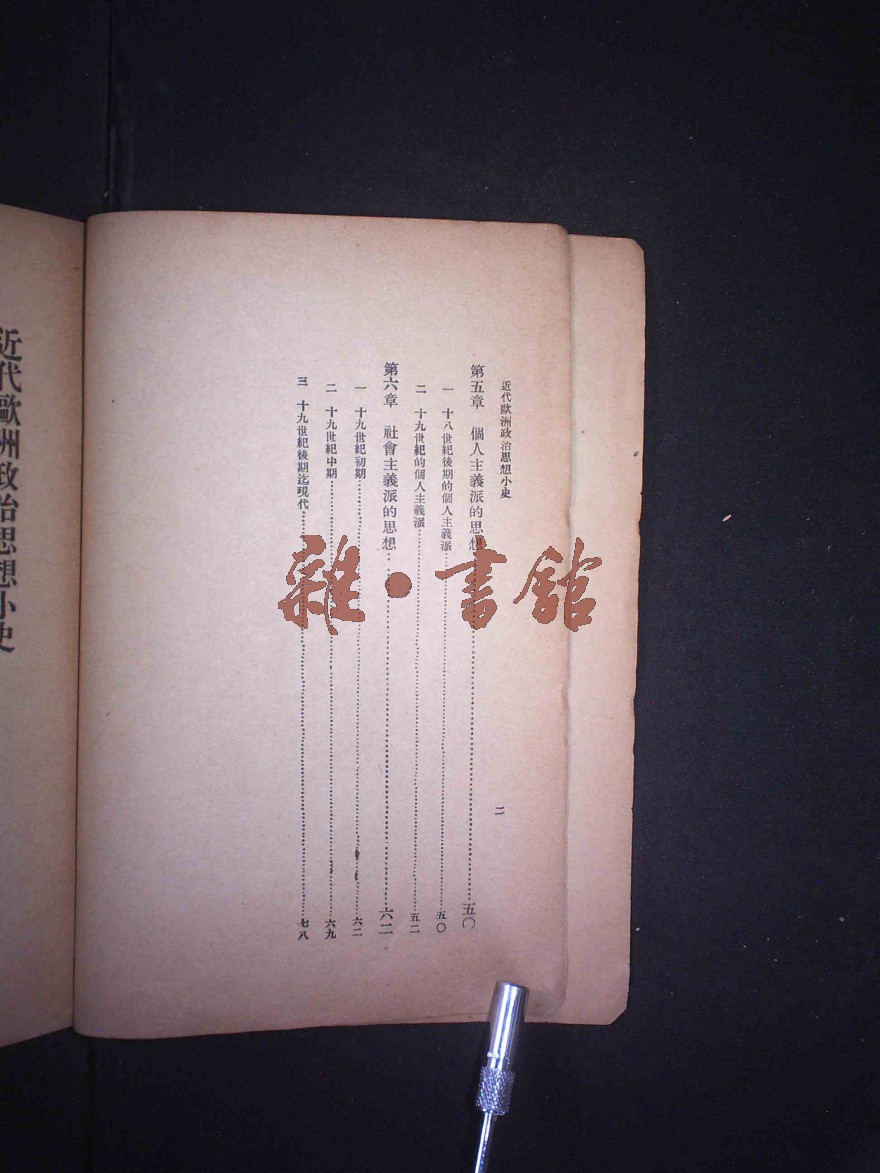 近代歐洲政治思想小史
二
第五章　個人主義派的思想……五〇
一　十八世紀後期的個人主義派……五〇
二　十九世紀的個人主義派……五二
第六章　社會主義派的思想……六二
一　十九世紀初期……六二
二　十九世紀中期……六九
三　十九世紀後期迄現代……七八
近代歐洲政治思想小史
雜·書館